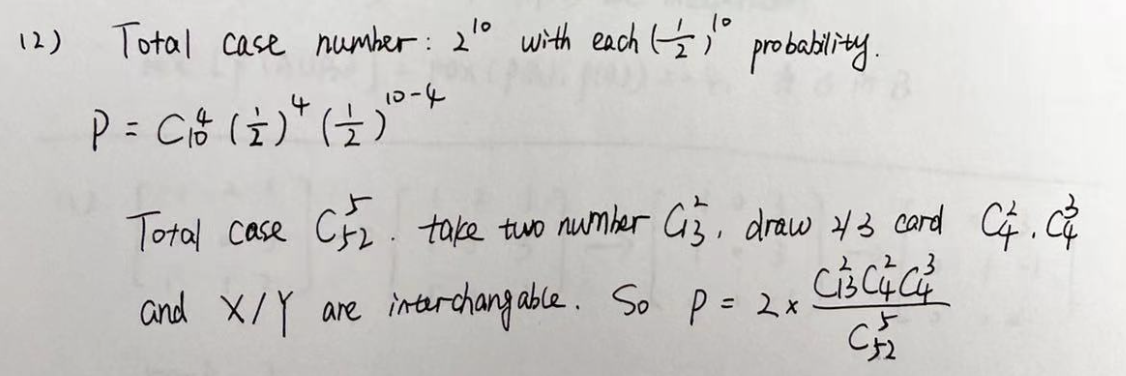 12) Total case number: 2^10 with each (1/2)^10 probability.
P = C_10^4 (1/2)^4 (1/2)^10-4
Total case C_52^5. take two number C_13^2, draw 2/3 card C_4^2, C_4^3
and X/Y are interchangable. So P = 2 × C_13^2 C_4^2 C_4^3 / C_52^5